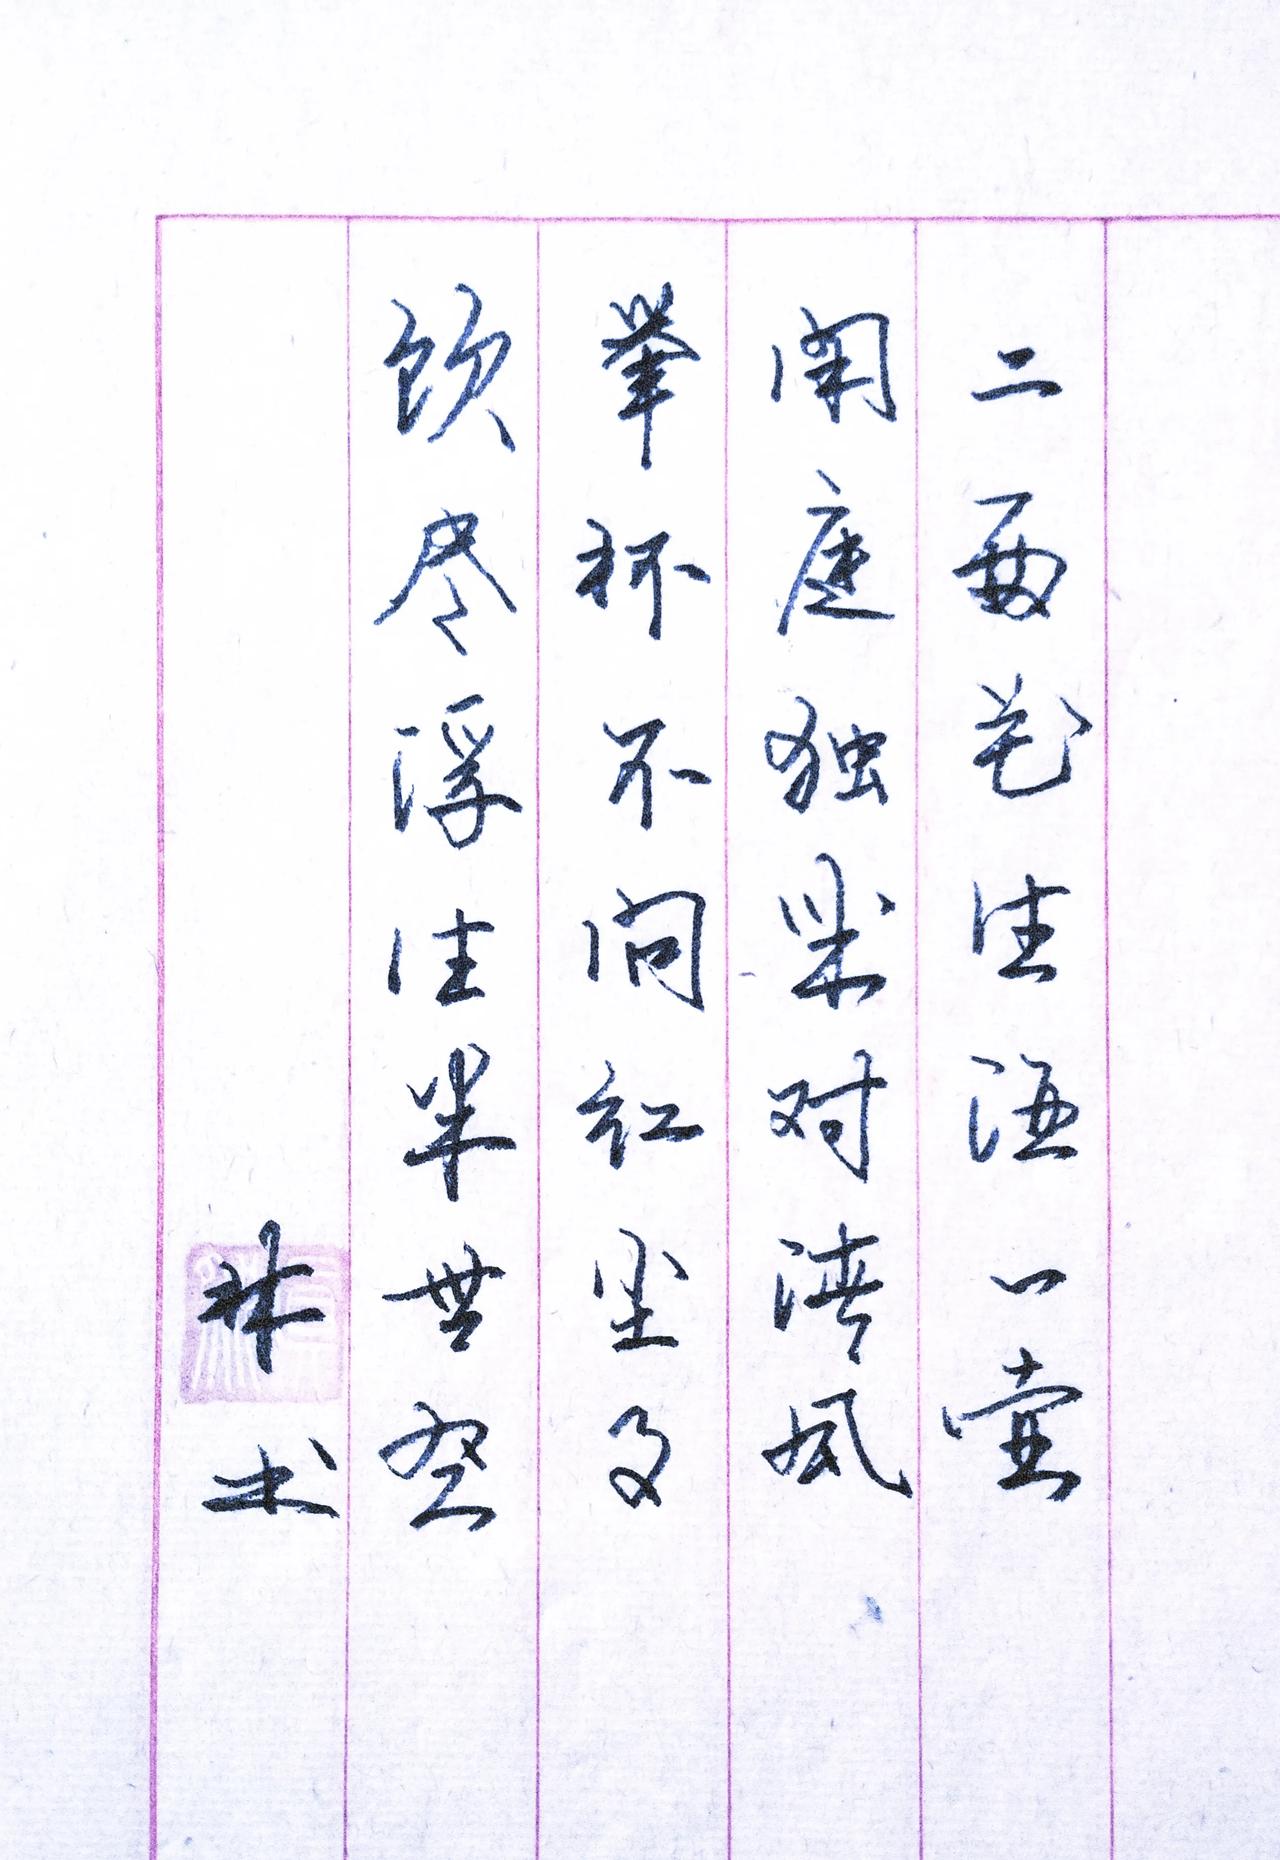 二两花生酒一壶
闲庭独坐对清风
举杯不问红尘事
饮尽浮生半世空
林书